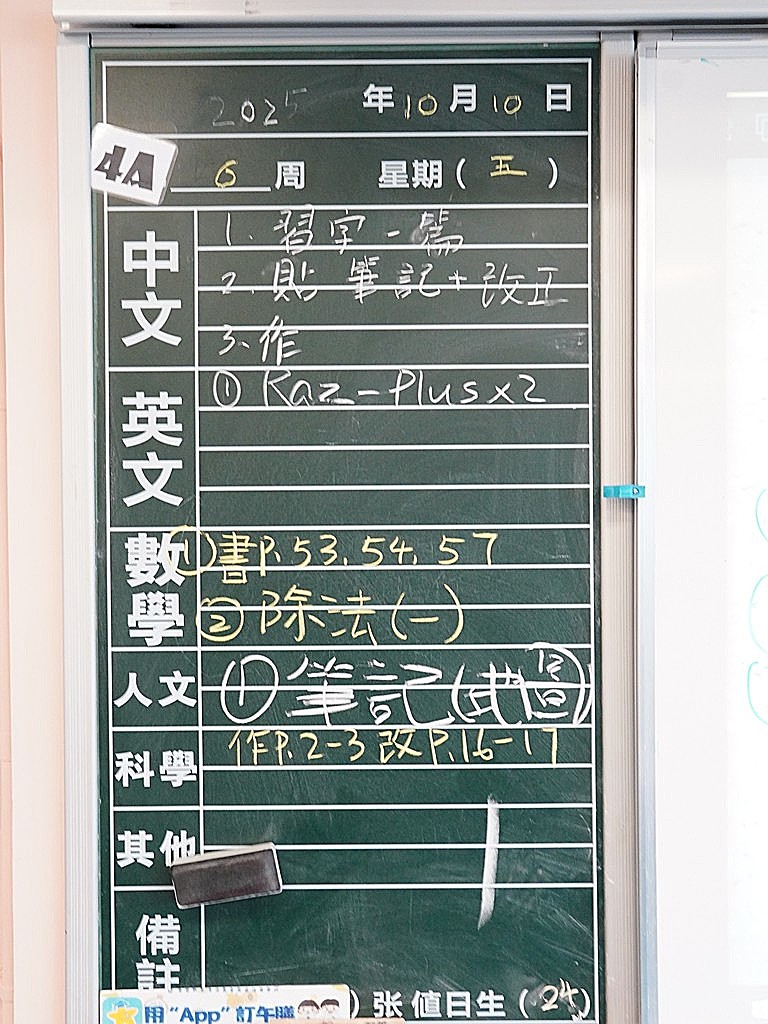 2025 年 10 月 10 日
4A
6 周 星期 ( 五 )
中文
1. 習字一篇
2. 貼筆記+改正
3. 作
英文
① Raz-Plus x2
數學
① 書P.53, 54, 57
② 除法(一)
人文
① 筆記(試圖)
科學
作P.2-3 改P.16-17
其他
備註
用“App”訂午膳
) 张 值日生 ( 24 )